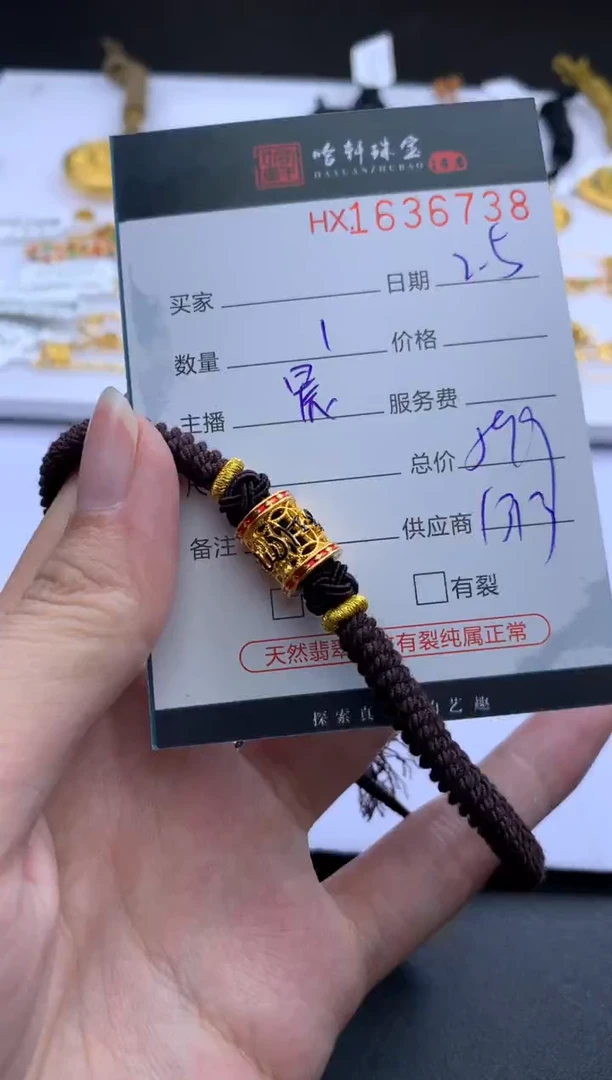 哈轩珠宝
HAXUANZHUBAO
HX.1636738
买家 日期 2.5
数量 1 价格
主播 晨 服务费
总价 899
备注 供应商
有裂
天然翡翠 有裂纯属正常
探索真 的艺趣